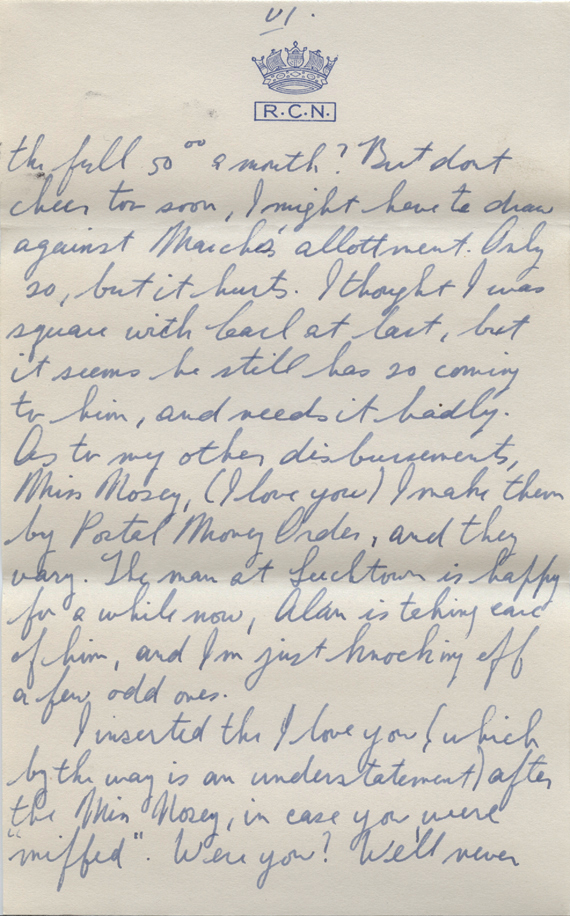 VI.
R.C.N.
the full 50⁰⁰ a month? But dont
cheer too soon, I might have to draw
against March's allottment. Only
20, but it hurts. I thought I was
square with Carl at last, but
it seems he still has 20 coming
to him, and needs it badly.
As to my other disbursements,
Miss Nosey, (I love you) I make them
by Postal Money Order, and they
vary. The man at is happy
for a while now, Alan is taking care
of him, and I'm just knocking off
a few odd ones.
I inserted the I love you (which
by the way is an understatement) after
the Miss Nosey, in case you were
"miffed". Were you? We'll never